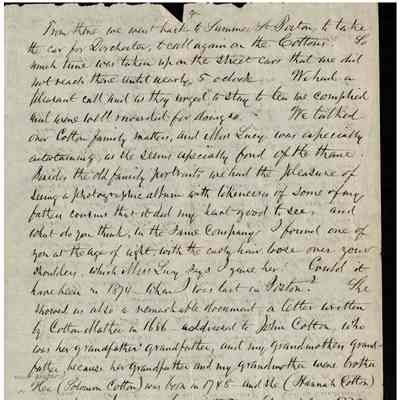 From there we went back to Summer St Boston, to take
the car for Dorchester, to call again on the Cottons. So
much time was taken up on the street cars that we did
not reach there until nearly 5 o'clock. We had a
pleasant call, and as they urged to stay to tea we complied
and were well rewarded for doing so. We talked
over Cotton family matters, and Miss Lucy was especially
entertaining, as she seems especially fond of the theme.
Besides the old family portraits we had the pleasure of
seeing a photographic album with likenesses of some of my
father's cousins that it did my heart good to see, and
what do you think, in the same company I found one of
you at the age of eight with the curly hair loose over your
shoulders, which Miss Lucy says I gave her! Could it
have been in 1874 when I was last in Boston? She
showed us also a remarkable document, a letter written
by Cotton Mather in 1686 addressed to John Cotton, who
was her grandfather's grandfather, and my grandmother's grand-
father because her grandfather and my grandmother were brother
(Solomon Cotton) was born in 1745 and she (Hannah Cotton)